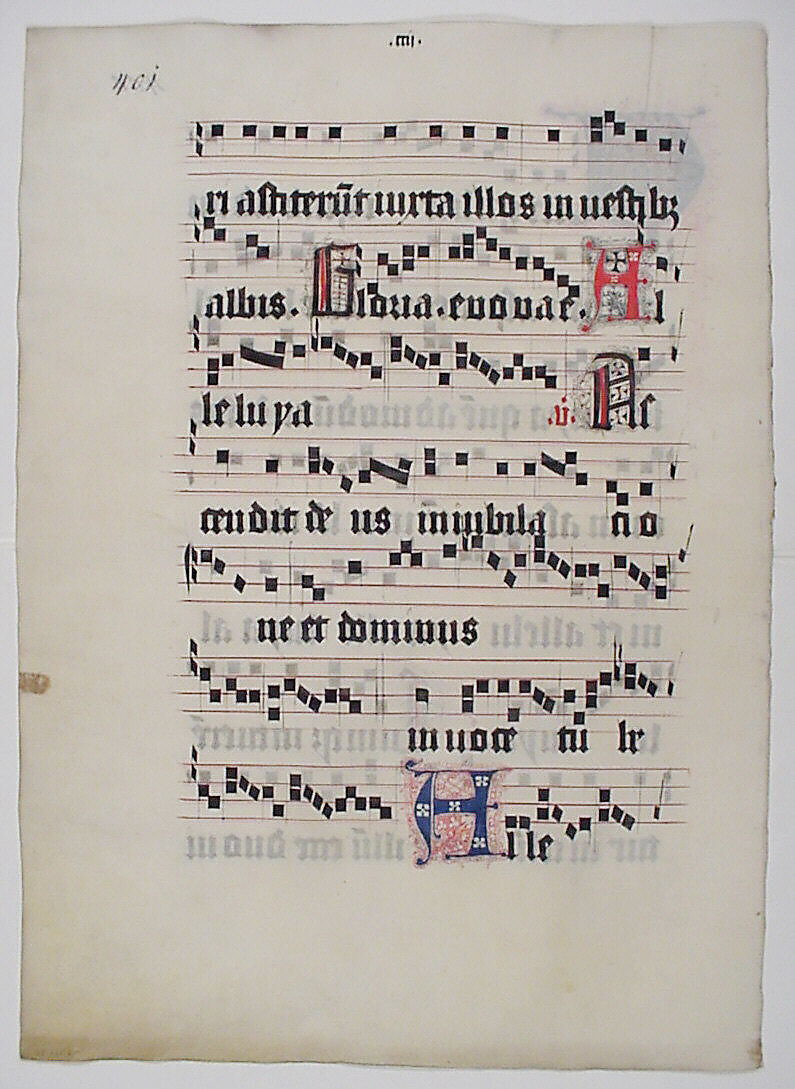 .iiij.
401
ri astiterūt iuxta illos in vestibȝ
albis. Gloria. euouae. Al
le lu ya .v. As
cendit de us in iubila cio
ne et dominus
in uoce tu be
Alle